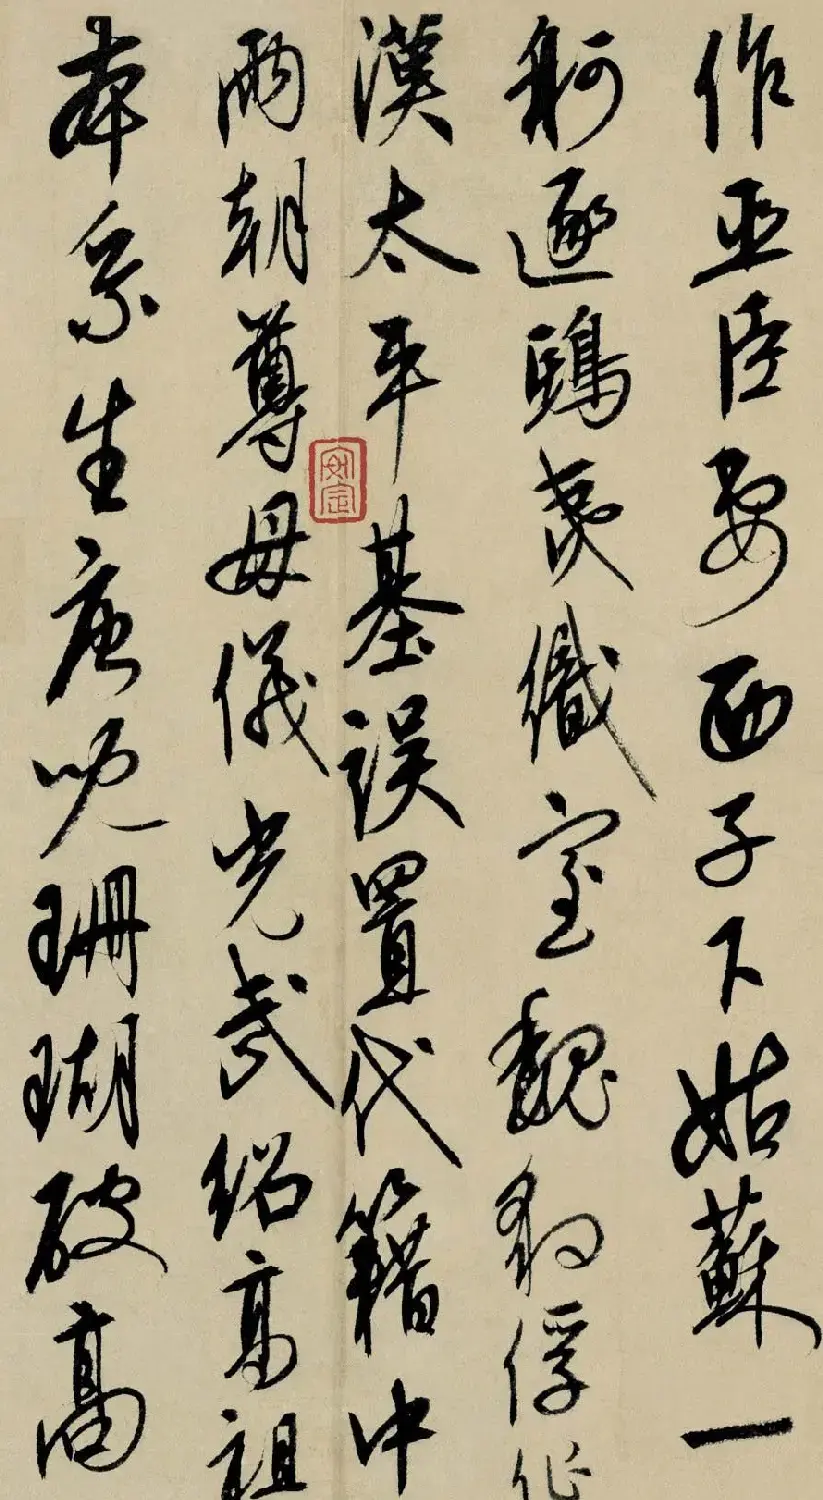 作巫臣西子下姑蘇一
舸逐鴟夷織室魏豹俘作
漢太平基誤置代籍中
兩朝尊母儀光武紹高祖
本系生唐兒珊瑚破高
安定